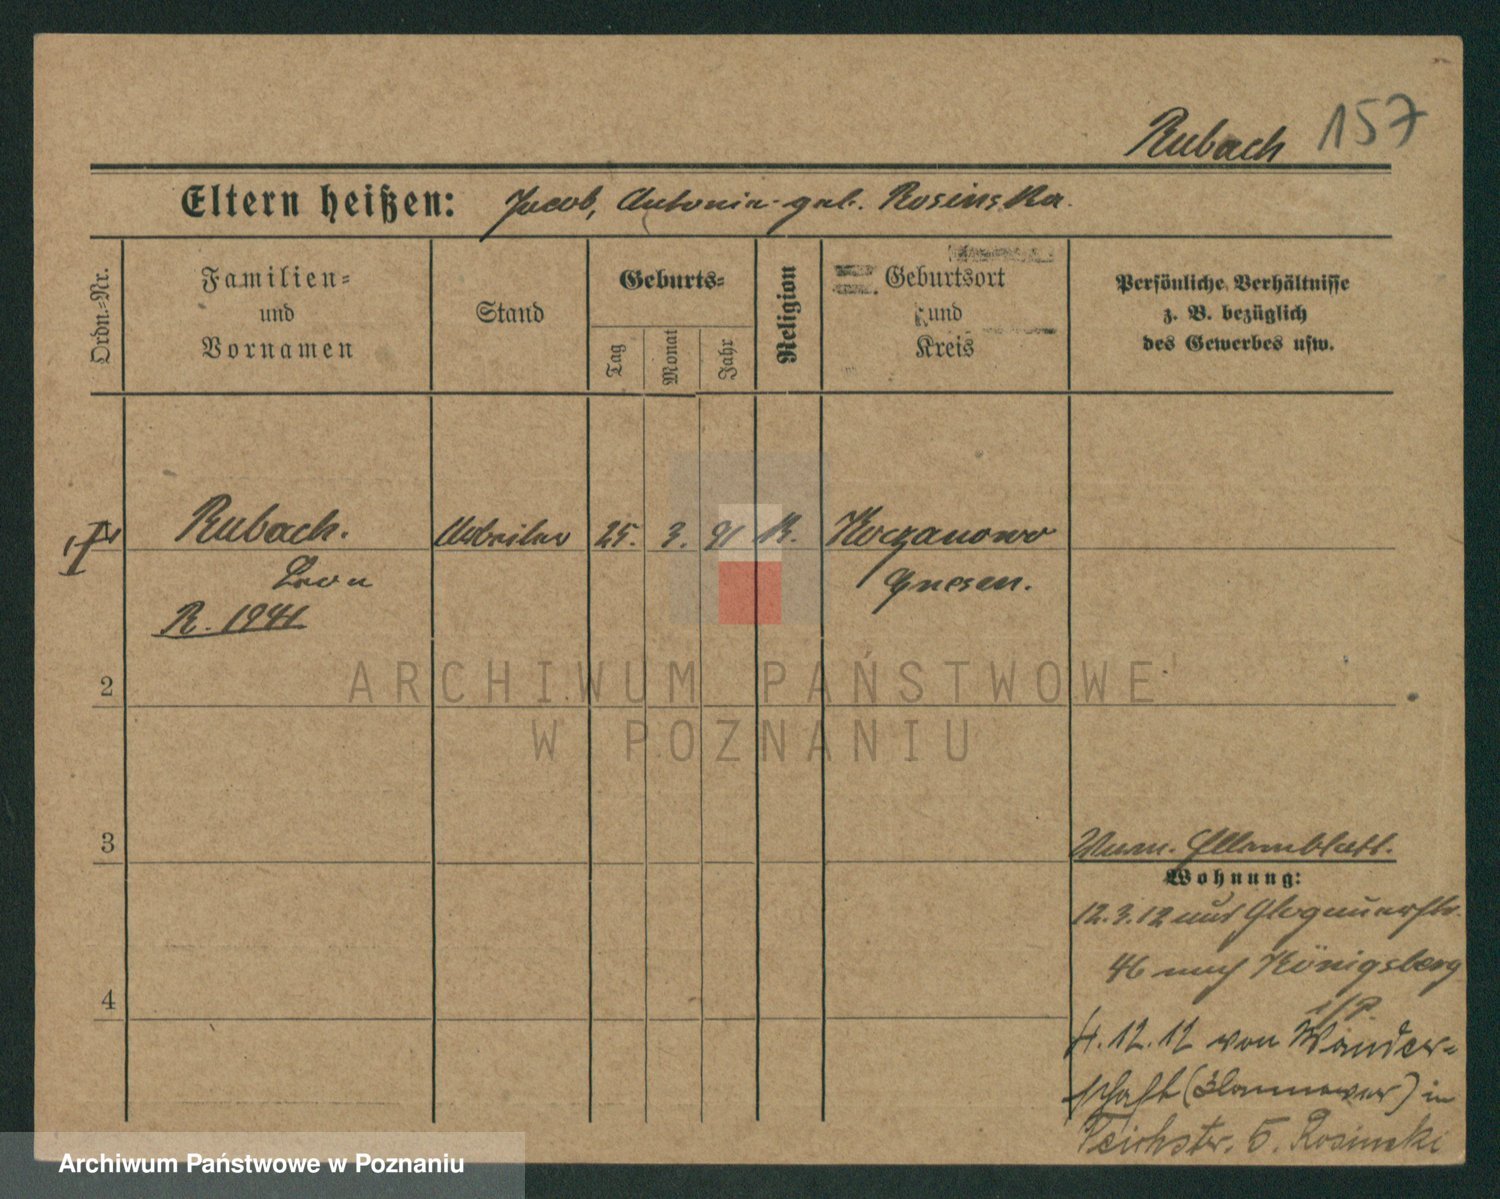 Rubach 157
Eltern heißen: Jacob, Antonia geb. Rosinska.
Ordn.-Nr.
Familien-
und
Vornamen
Stand
Geburts-
Tag
Monat
Jahr
Religion
Geburtsort
und
Kreis
Persönliche Verhältnisse
z. B. bezüglich
des Gewerbes usw.
Rubach. Arbeiter 25. 3. 91 K. Koczanowo
Leon Gnesen.
R. 1941
2
3
4
Elternblatt.
Wohnung:
12.3.12 aus Glogauerstr.
46 nach Königsberg
i/P.
4.12.12 von Wander-
schaft (Hannover) in
Teichstr. 5. Rosinski
ARCHIWUM PAŃSTWOWE
W POZNANIU
Archiwum Państwowe w Poznaniu